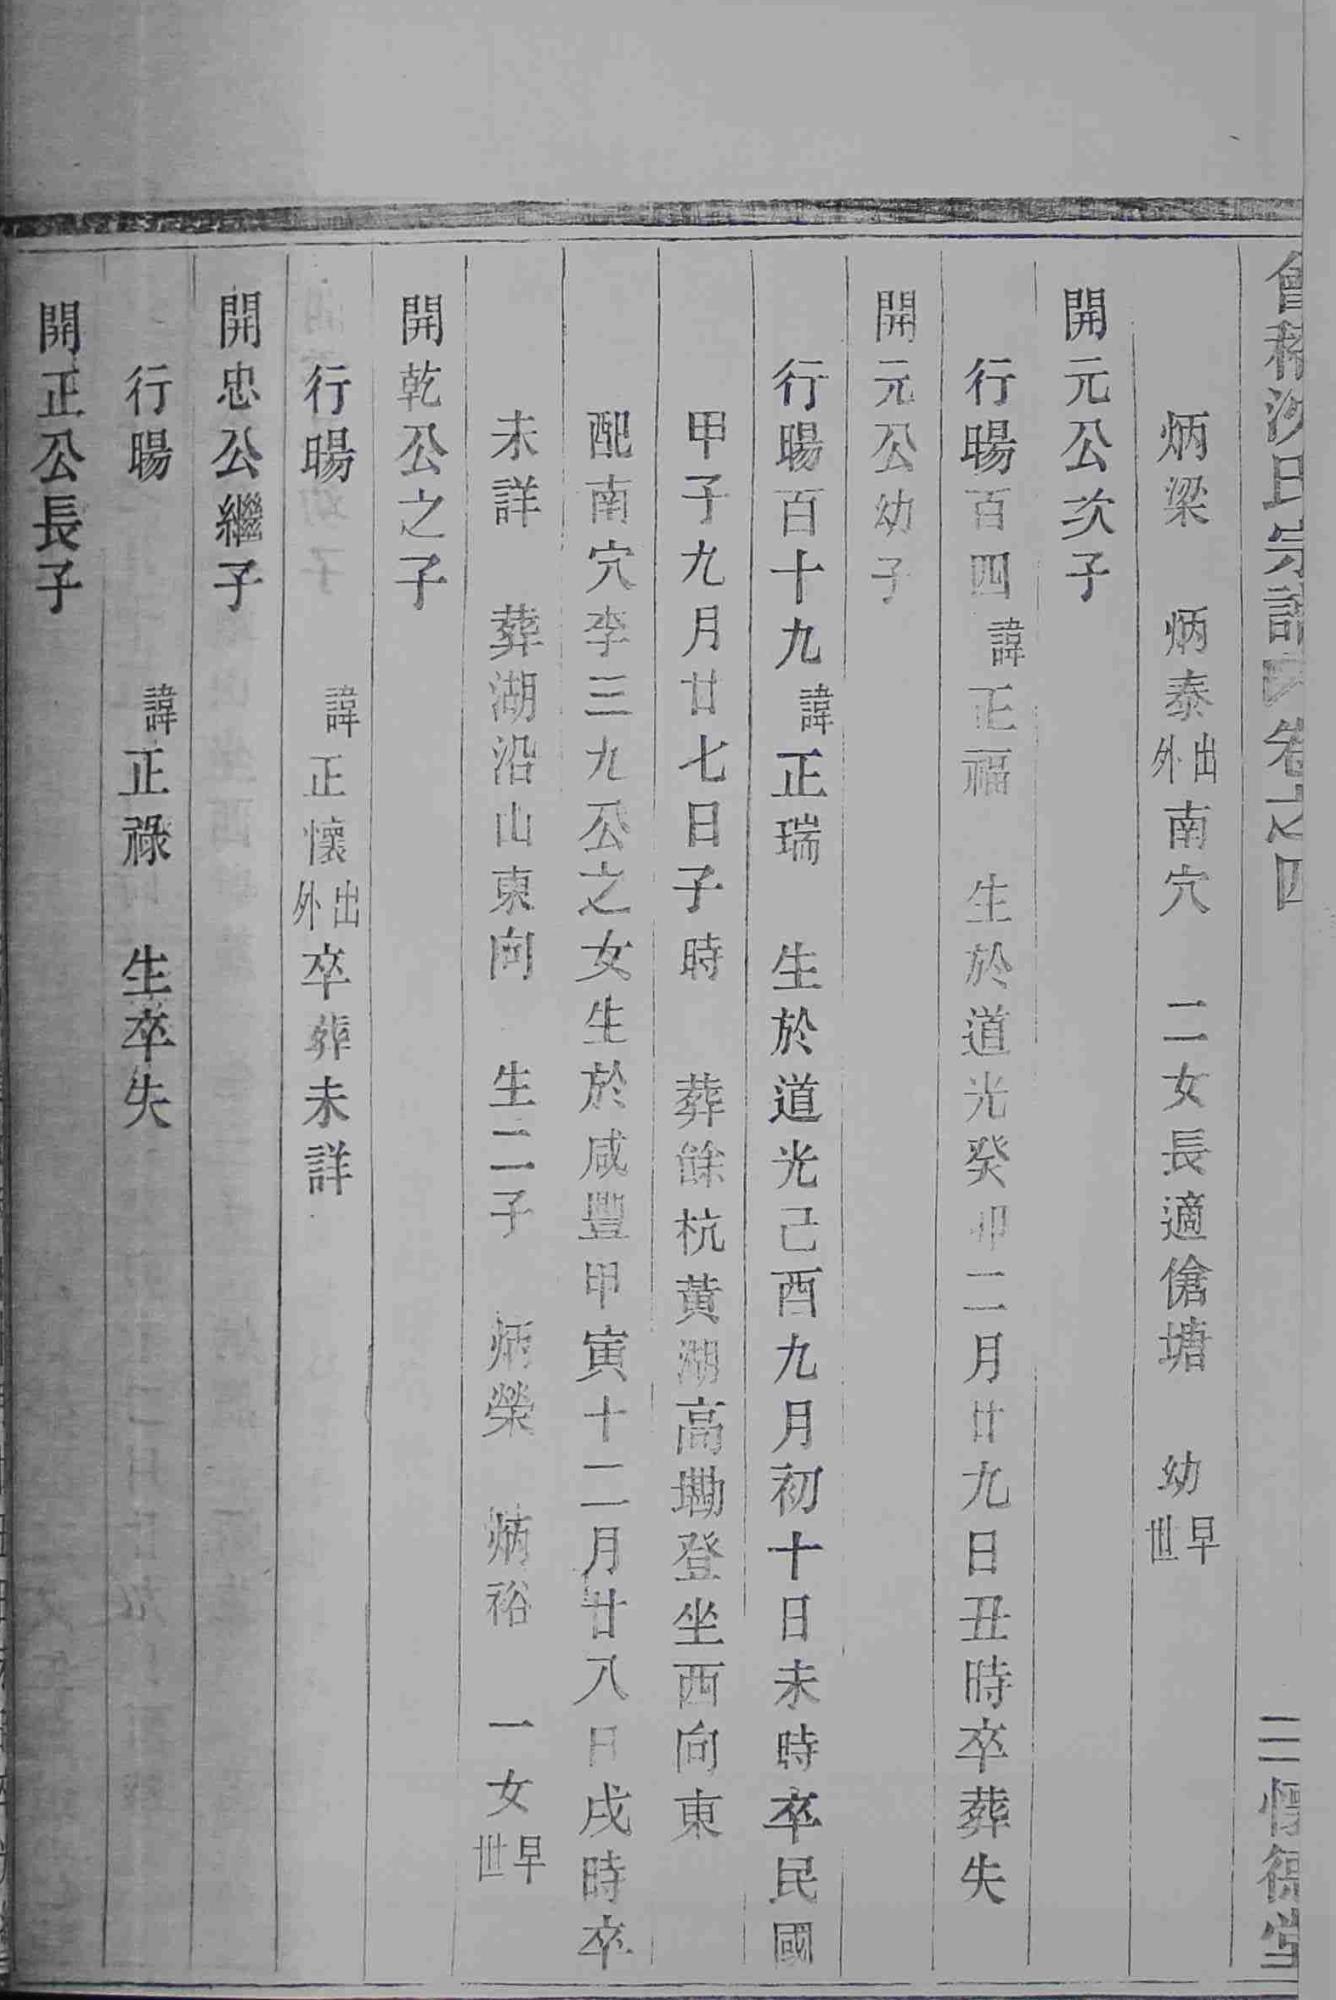 會稽沈氏宗譜 卷之四 二 懷德堂
炳梁 炳泰出外南穴 二女長適傖塘 幼早世
開元公次子
行暘百四諱正福 生於道光癸卯二月廿九日丑時卒葬失
開元公幼子
行暘百十九諱正瑞 生於道光己酉九月初十日未時卒民國
甲子九月廿七日子時 葬餘杭黃湖高墈登坐西向東
配南穴李三九公之女生於咸豐甲寅十二月廿八日戌時卒
未詳 葬湖沿山東向 生二子 炳榮 炳裕 一女早世
開乾公之子
行暘 諱正懷出外卒葬未詳
開忠公繼子
行暘 諱正祿 生卒失
開正公長子